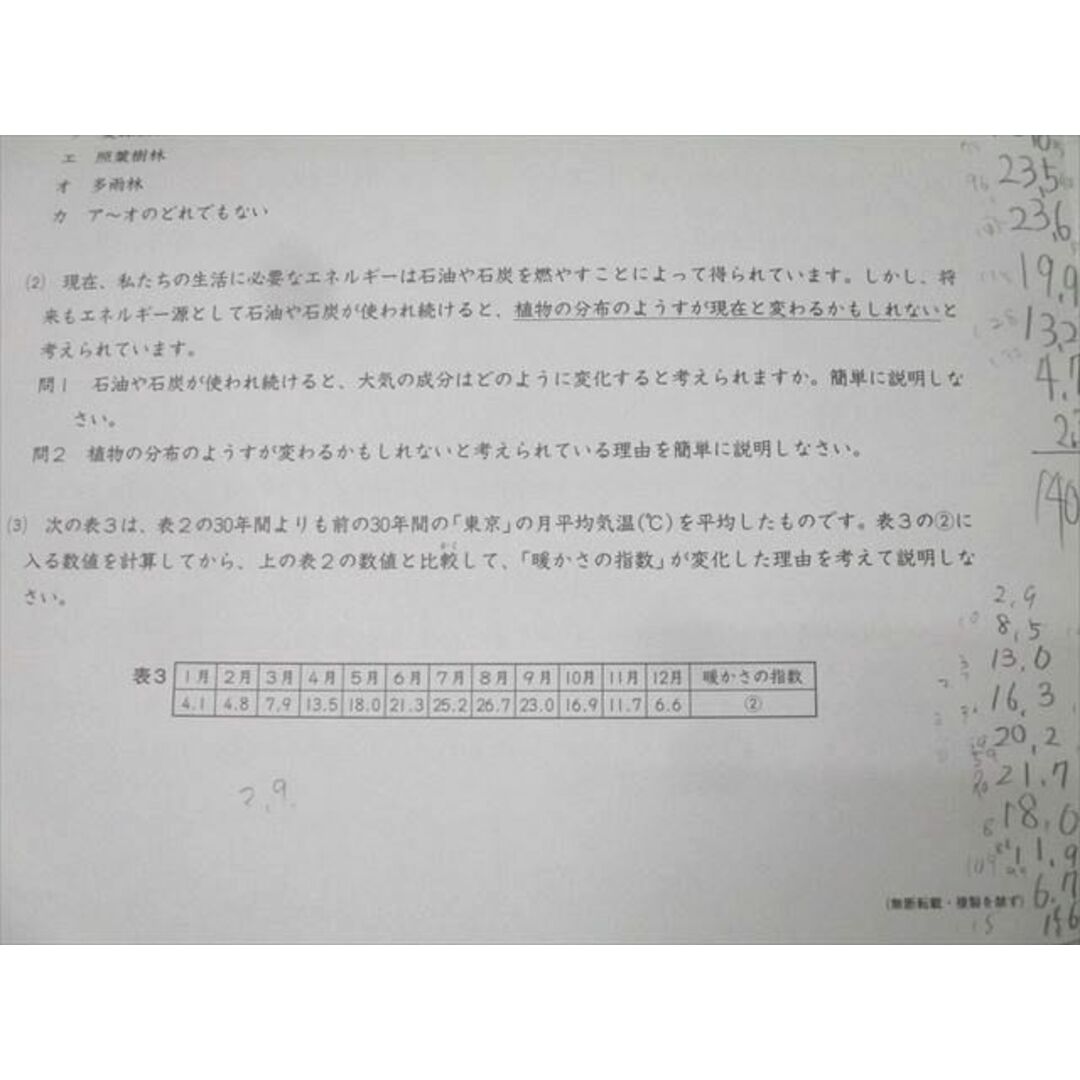 エ 照葉樹林
オ 多雨林
カ ア～オのどれでもない
(2) 現在、私たちの生活に必要なエネルギーは石油や石炭を燃やすことによって得られています。しかし、将
来もエネルギー源として石油や石炭が使われ続けると、植物の分布のようすが現在と変わるかもしれないと
考えられています。
問1 石油や石炭が使われ続けると、大気の成分はどのように変化すると考えられますか。簡単に説明しな
さい。
問2 植物の分布のようすが変わるかもしれないと考えられている理由を簡単に説明しなさい。
(3) 次の表3は、表2の30年間よりも前の30年間の「東京」の月平均気温(℃)を平均したものです。表3の②に
入る数値を計算してから、上の表2の数値と比較して、「暖かさの指数」が変化した理由を考えて説明しな
さい。
表3 1月 2月 3月 4月 5月 6月 7月 8月 9月 10月 11月 12月 暖かさの指数
4.1 4.8 7.9 13.5 18.0 21.3 25.2 26.7 23.0 16.9 11.7 6.6 ②
2,9.
(無断転載・複製を禁ず)
23,5
23,6
19,9
13,2
4,7
140
2,9
8,5
13,0
16,3
20,2
21,7
18,0
11,9
6,7